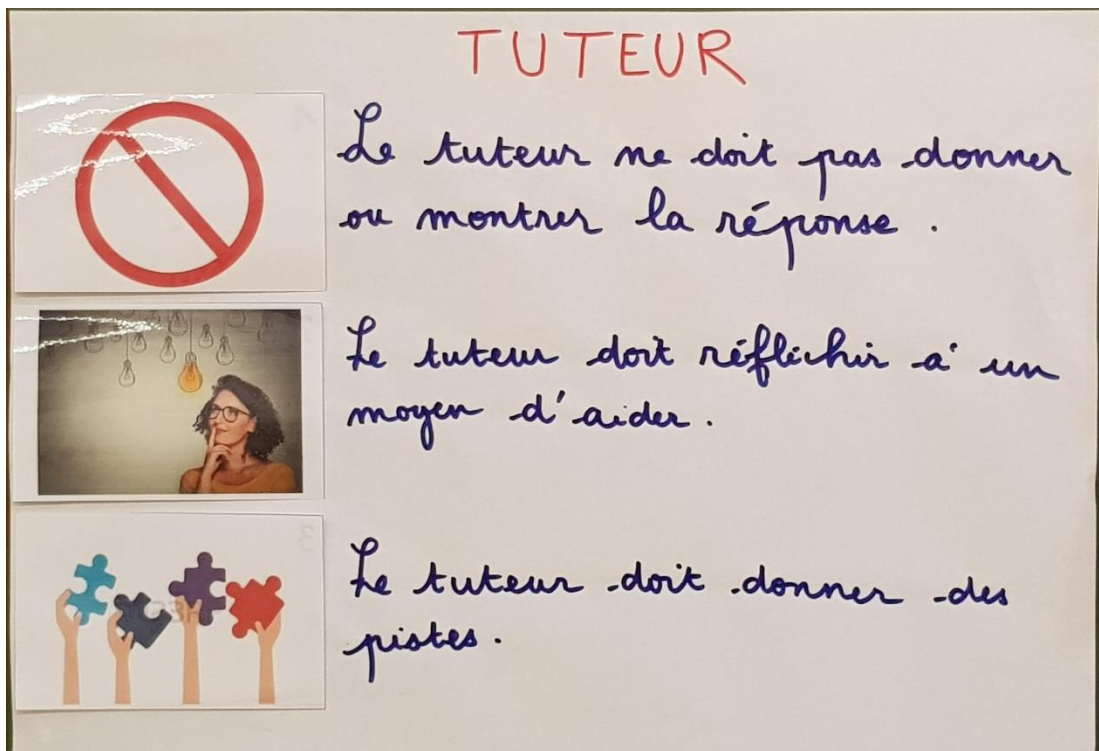 TUTEUR
Le tuteur ne doit pas donner
ou montrer la réponse .
Le tuteur doit réfléchir à un
moyen d'aider .
Le tuteur doit donner des
pistes .